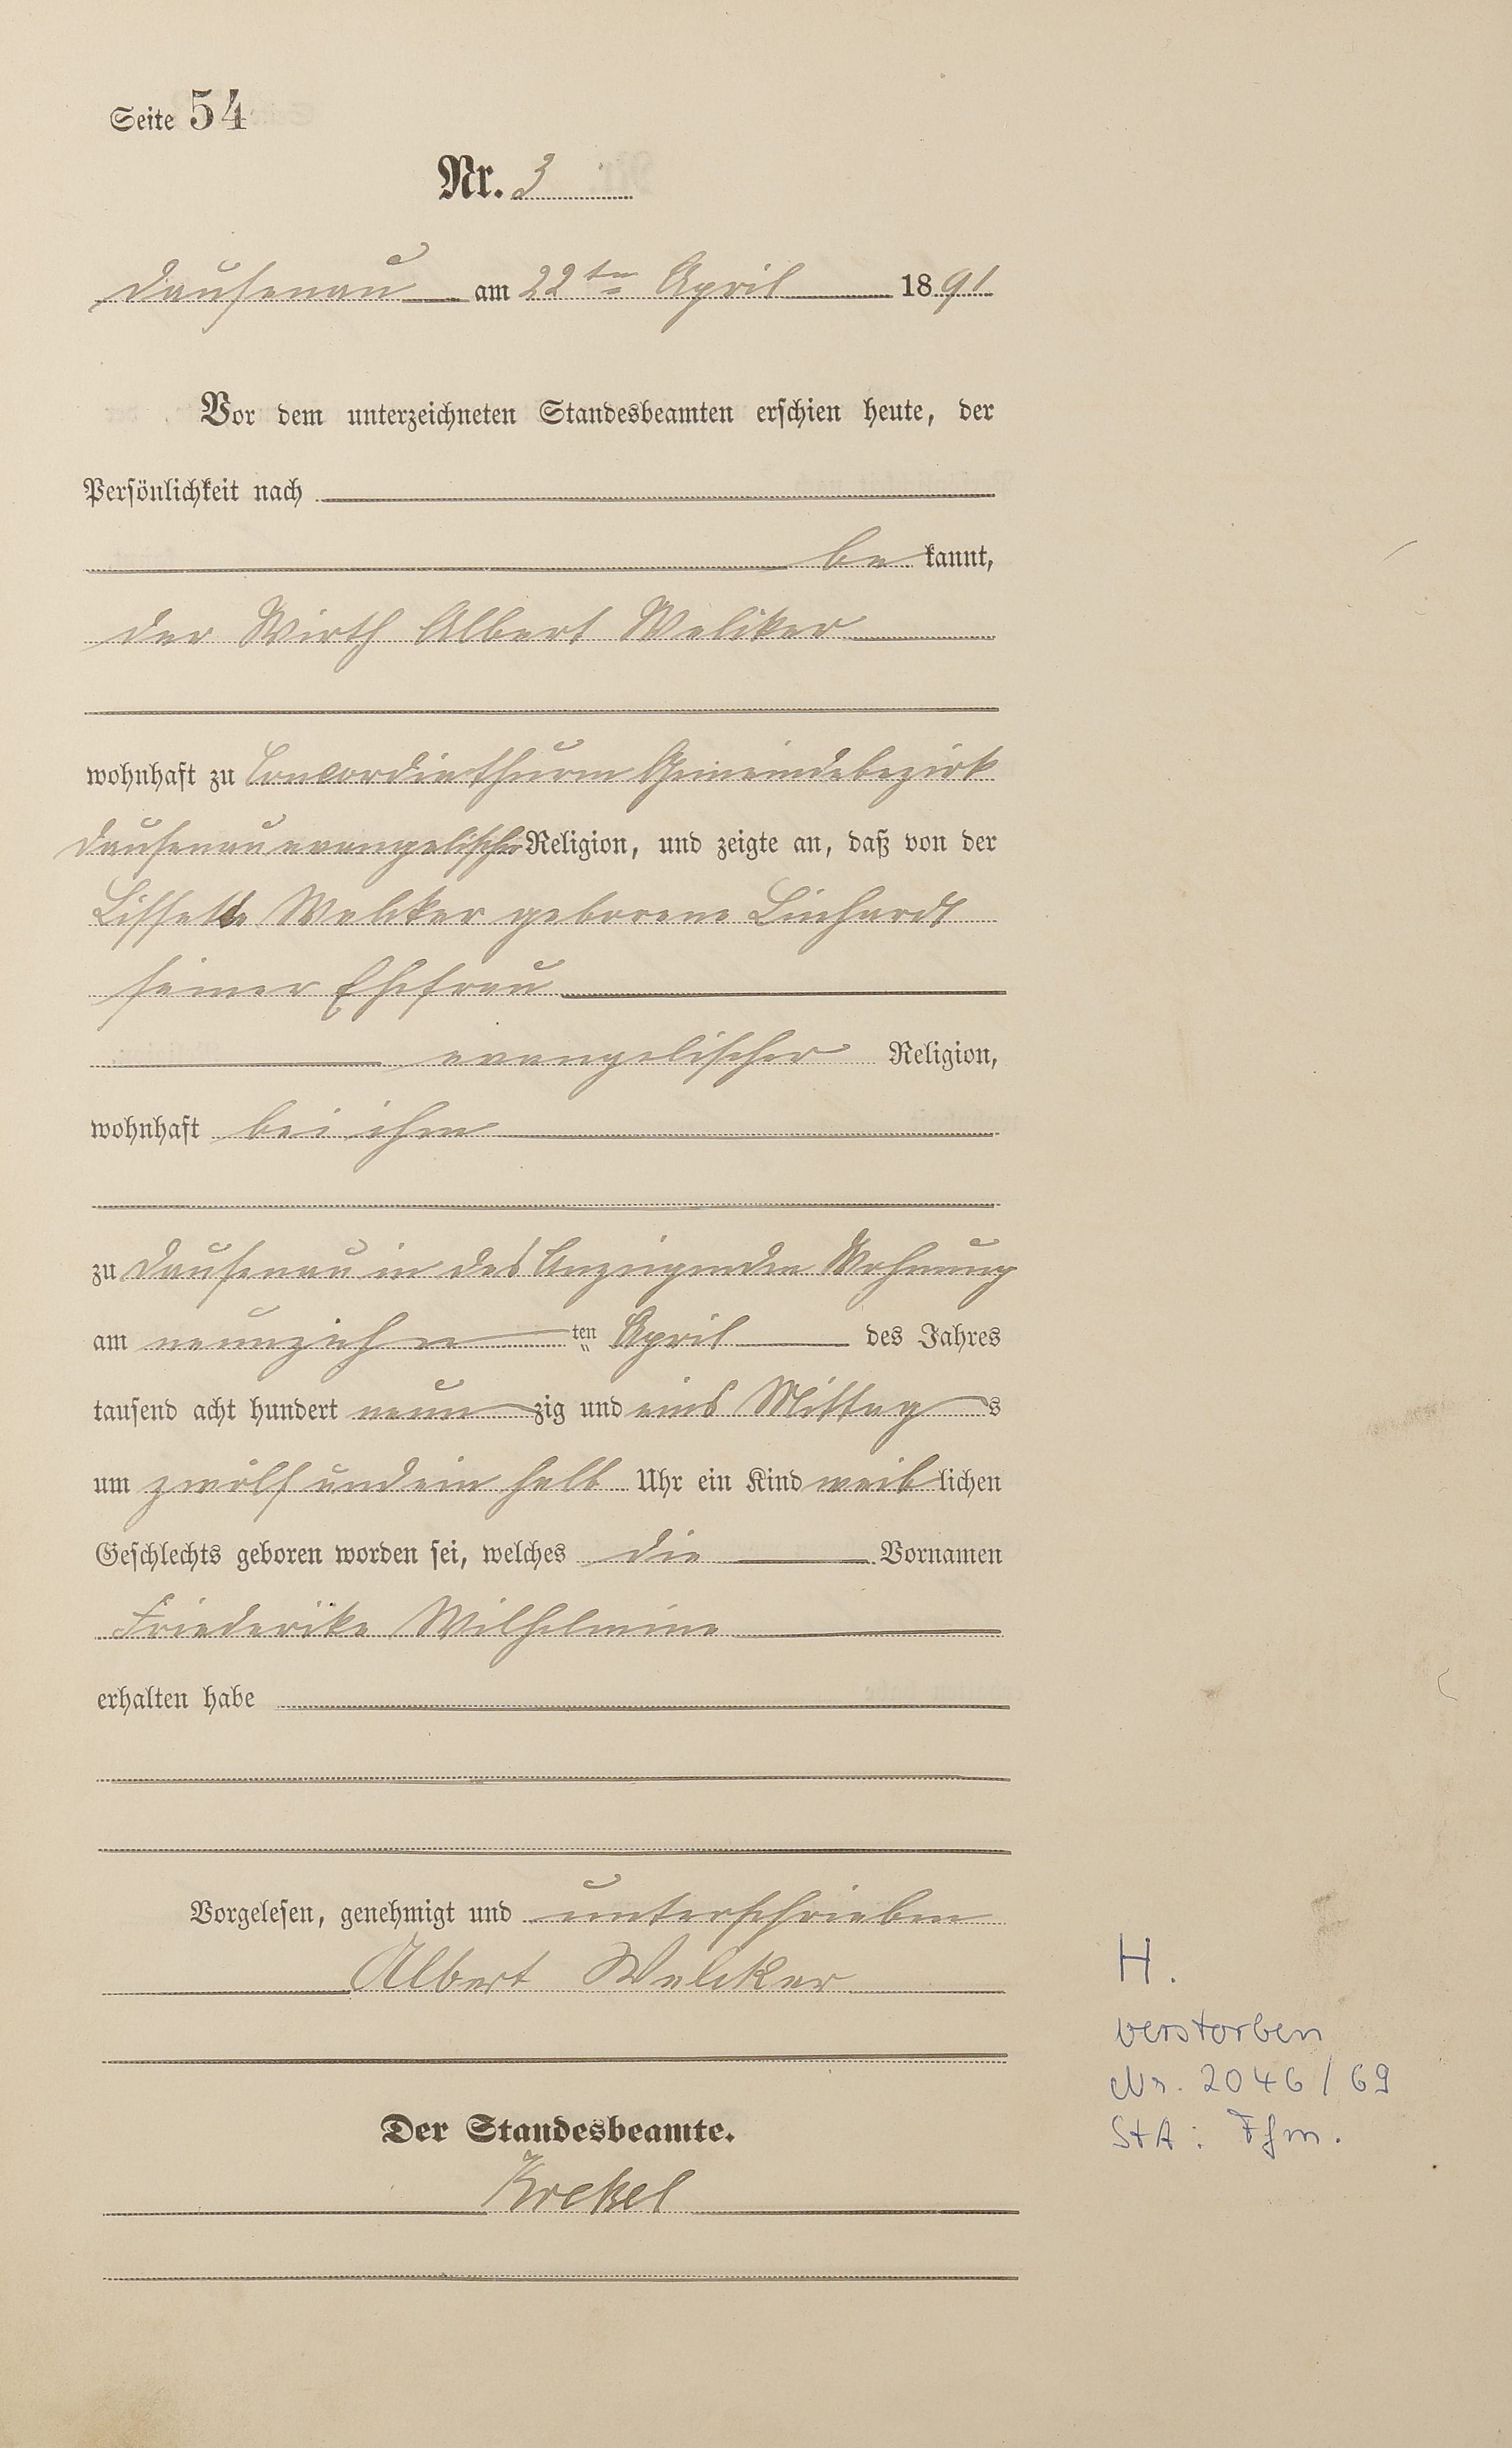 Seite 54
Nr. 3
Dausenau am 22ten April 1891
Vor dem unterzeichneten Standesbeamten erschien heute, der
Persönlichkeit nach
be kannt,
der Wirth Albert Welcker
wohnhaft zu Concordiathurm Gemeindebezirk
Dausenau evangelischer Religion, und zeigte an, daß von der
Lissette Welcker geborene Linhardt
seiner Ehefrau
evangelischer Religion,
wohnhaft bei ihm
zu Dausenau in des Anzeigenden Wohnung
am neunzehn ten April des Jahres
tausend acht hundert neun zig und eins Mittag s
um zwölf und ein halb Uhr ein Kind weib lichen
Geschlechts geboren worden sei, welches die Vornamen
Friederike Wilhelmine
erhalten habe
Vorgelesen, genehmigt und unterschrieben
Albert Welcker
Der Standesbeamte.
Krekel
H.
verstorben
Nr. 2046/69
StA: Ffm.